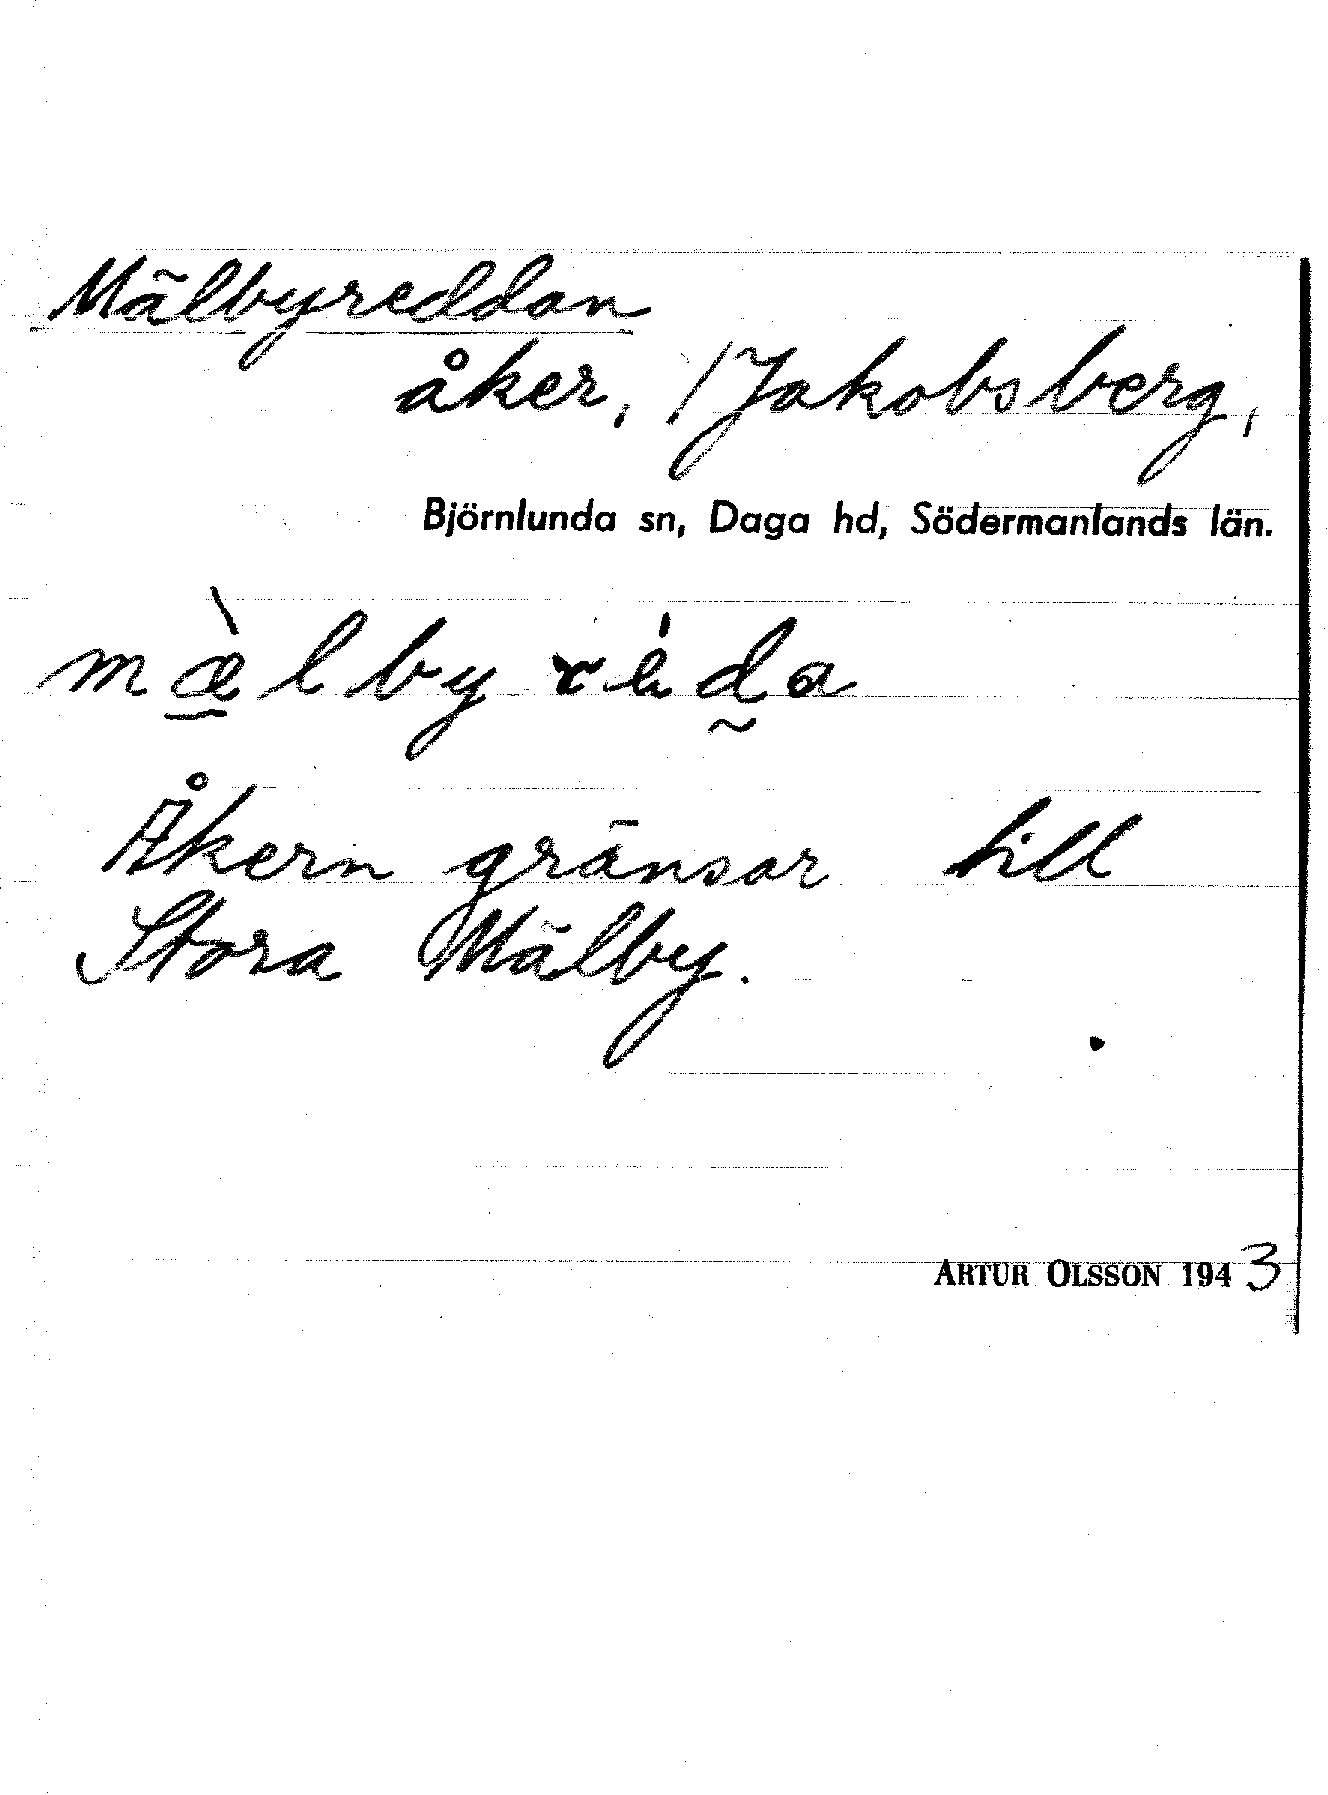 Mälbyreddan
åker, /Jakobsberg,
Björnlunda sn, Daga hd, Södermanlands län.
mæ̀lbyréda
Åkern gränsar till
Stora Mälby.
ARTUR OLSSON 1943